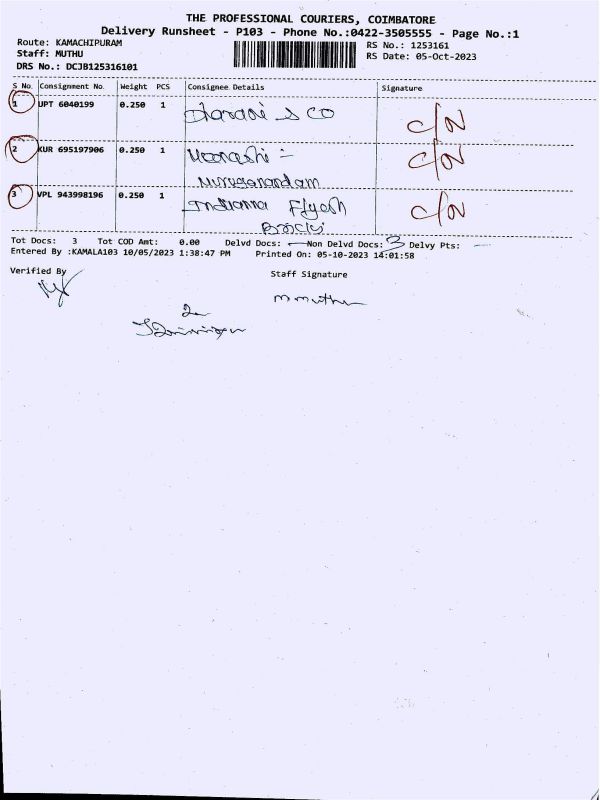 THE PROFESSIONAL COURIERS, COIMBATORE
Delivery Runsheet - P103 - Phone No.:0422-3505555 - Page No.:1
Route: KAMACHIPURAM RS No.: 1253161
Staff: MUTHU RS Date: 05-Oct-2023
DRS No.: DCJB125316101
S No. Consignment No. Weight PCS Consignee Details Signature
1 UPT 6040199 0.250 1 Dharani & CO C/N
2 KUR 695197906 0.250 1 Meenakshi - C/N
Muruganandam
3 VPL 943998196 0.250 1 Indianna Flyash C/N
Bricks
Tot Docs: 3 Tot COD Amt: 0.00 Delvd Docs: — Non Delvd Docs: 3 Delvy Pts: —
Entered By :KAMALA103 10/05/2023 1:38:47 PM Printed On: 05-10-2023 14:01:58
Verified By Staff Signature
m muthu